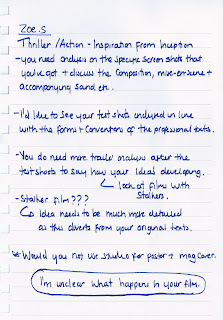 Zoe.S
Thriller/Action - Inspiration from Inception
- you need analysis on the specific screen shots that
you've got + discuss the composition, mise-en-scene +
accompanying sound etc.
- I'd like to see your test shots analysed in line
with the forms + conventions of the professional texts.
- You do need more trailer analysis after the
test shoots to say how your ideas developing.
look at films with
stalkers.
- Stalker film???
idea needs to be much more detailed
as this diverts from your original texts.
- Would you not use studio for poster + mag cover.
I'm unclear what happens in your film.